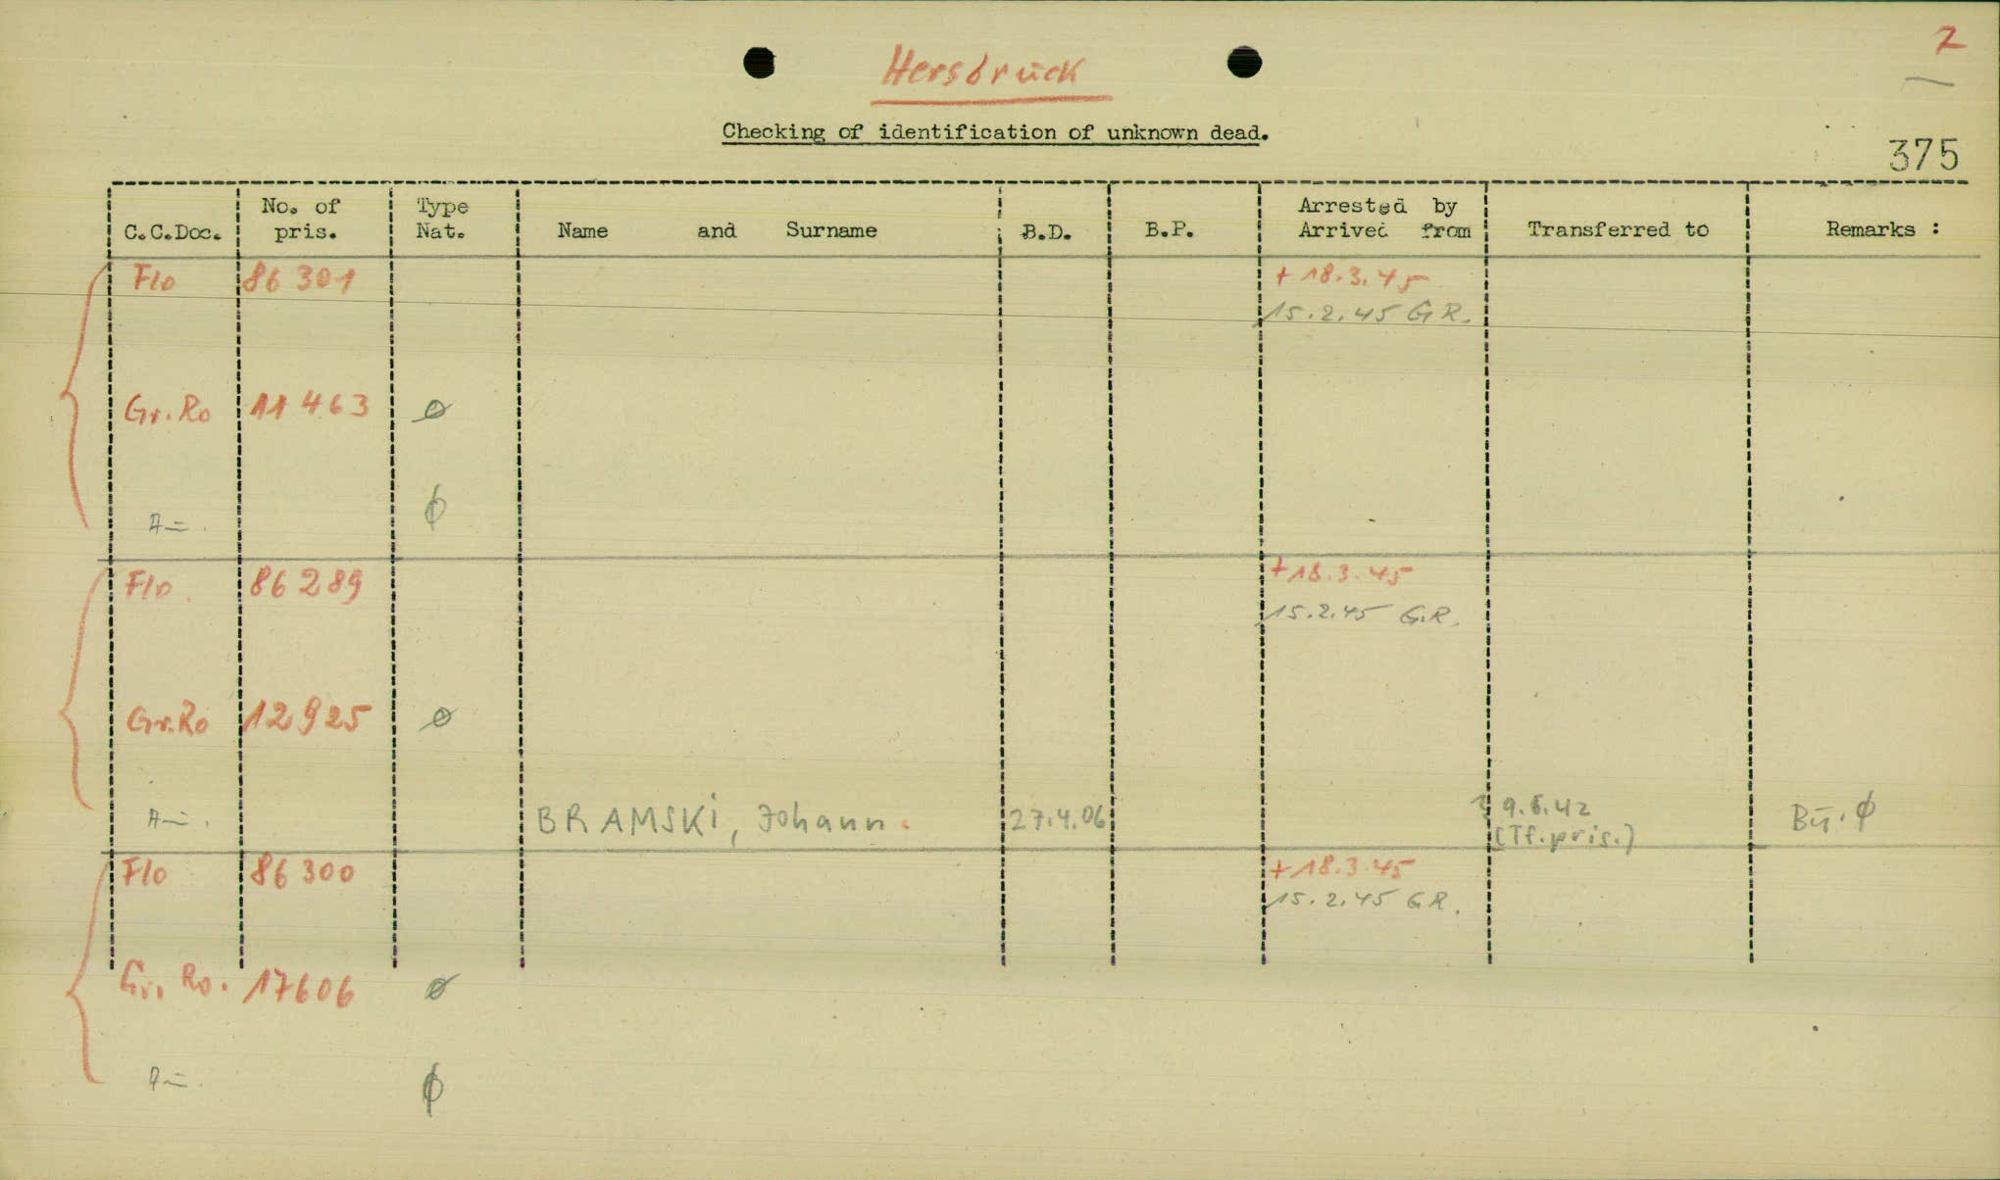 2
Hersbruck
Checking of identification of unknown dead.
375
C.C.Doc. No. of pris. Type Nat. Name and Surname B.D. B.P. Arrested by Arrived from Transferred to Remarks :
Flo 86 301 + 18.3.45
15.2.45 G R.
Gr.Ro 11 463 ø
ϕ
Flo. 86 289 + 18.3.45
15.2.45 G.R.
Gr.Ro 12 925 ø
BRAMSKi, Johann. 27.4.06 9.6.42 Bü. ϕ
(Tf.pris.)
Flo 86 300 + 18.3.45
15.2.45 G R.
Gr. Ro. 17606 ø
ϕ